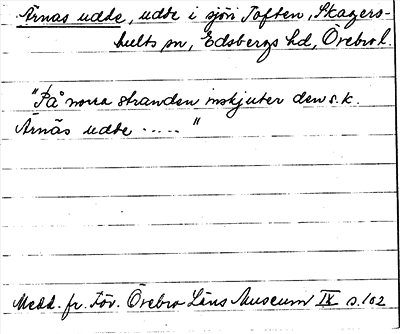 Ärnas udde, udde i sjön Toften, Skagers-
hults sn, Edsbergs hd, Örebro l.
"På norra stranden inskjuter den s.k.
Ärnäs udde ..... "
Medd. fr. För. Örebro Läns Museum IX s. 102